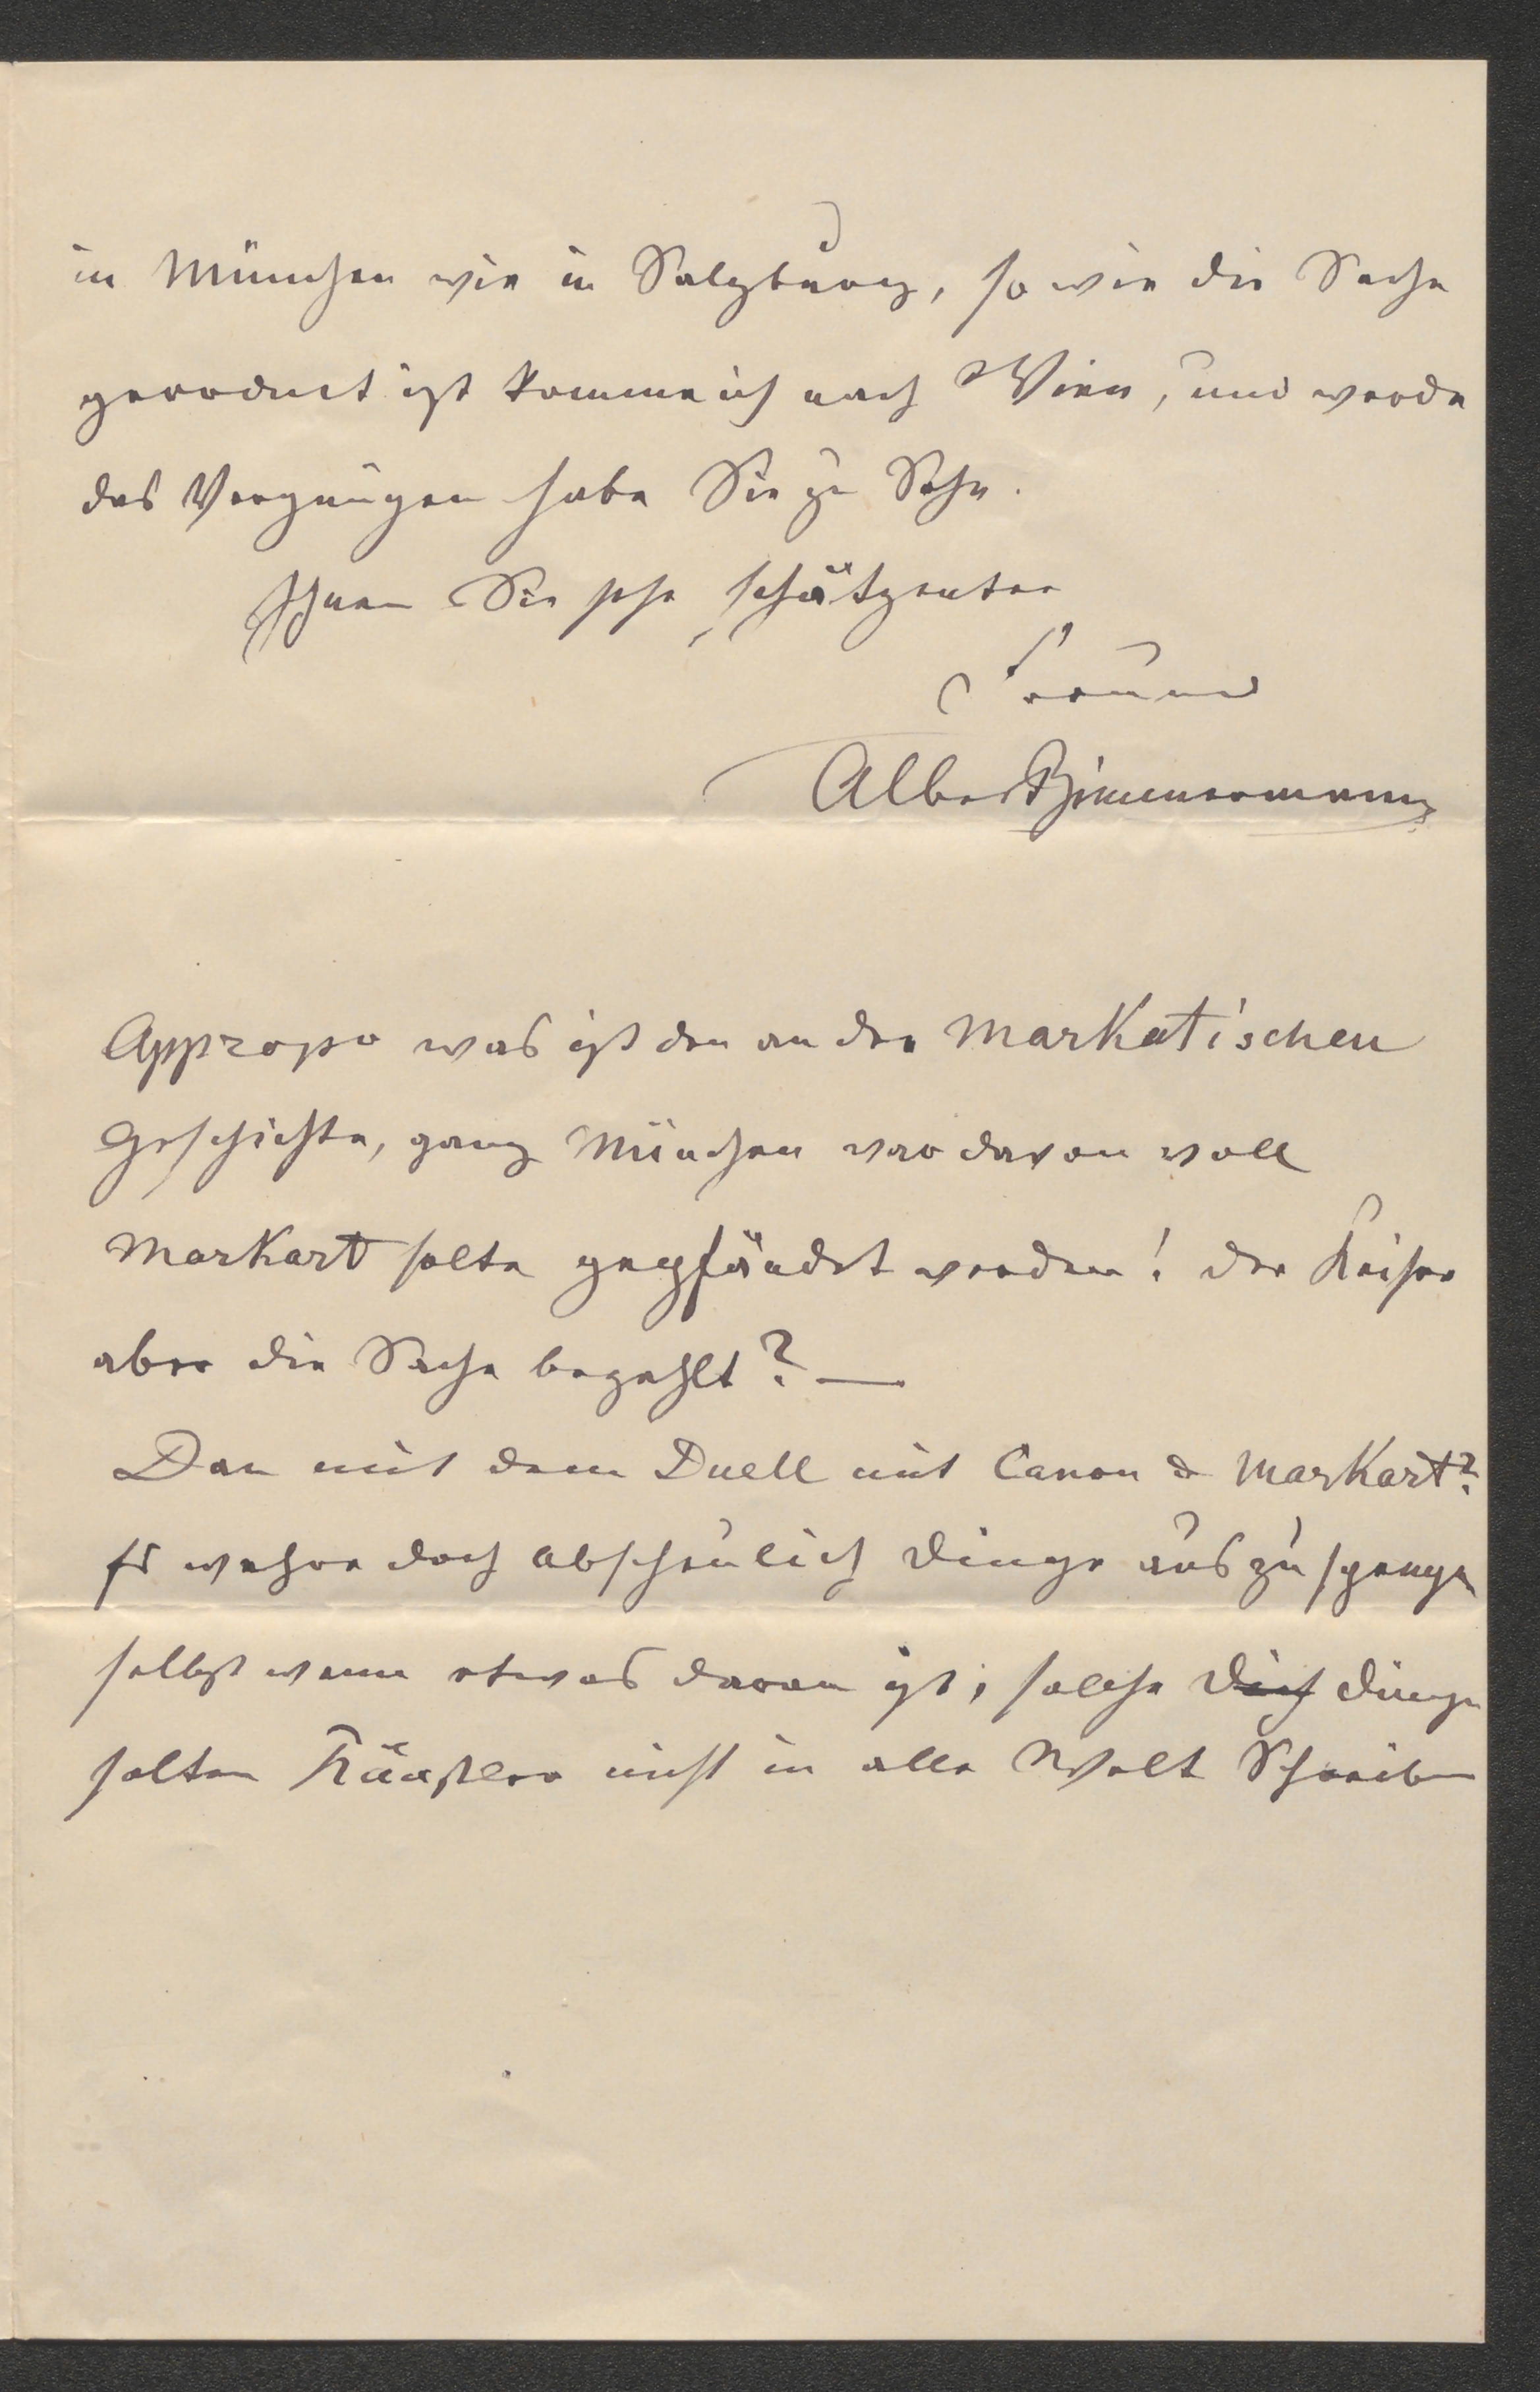 in München wie in Salzburg, so wie die Sache
geordnet ist komme ich nach Wien, und werde
das Vergnügen habe Sie zu Sehn.
Ihnen Sie sehr schätzenter
Freund
Albert Zimmermann
Appropo was ist den an der Markatischen
Geschichte, ganz München war davon voll
Markart solte gepfändet werden! der Keiser
aber die Sache bezahlt? —
Dan mit dem Duell mit Canon & Markart?
Es wehre doch abscheulich Dinge aus zu sprenge
selbst wenn etwas daran ist, solche Dinge
solten Künstler nicht in alle Welt Schreiben